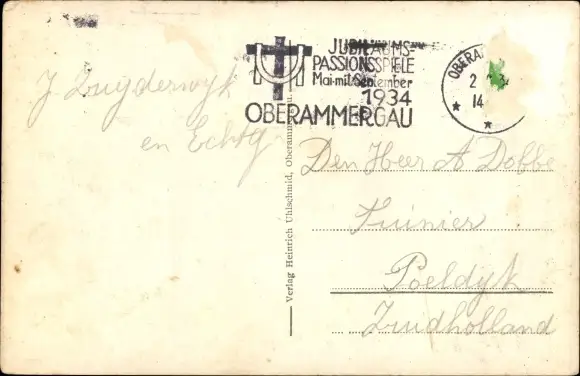 JUBILÄUMS-
PASSIONSSPIELE
Mai-mit.September
1934
OBERAMMERGAU
OBERA
2
14
J Zuyderwyk
en Echtg
Verlag Heinrich Uhlschmid, Oberammergau.
Den Heer A Dobbe
Tuinier
Poeldyk
Zuidholland